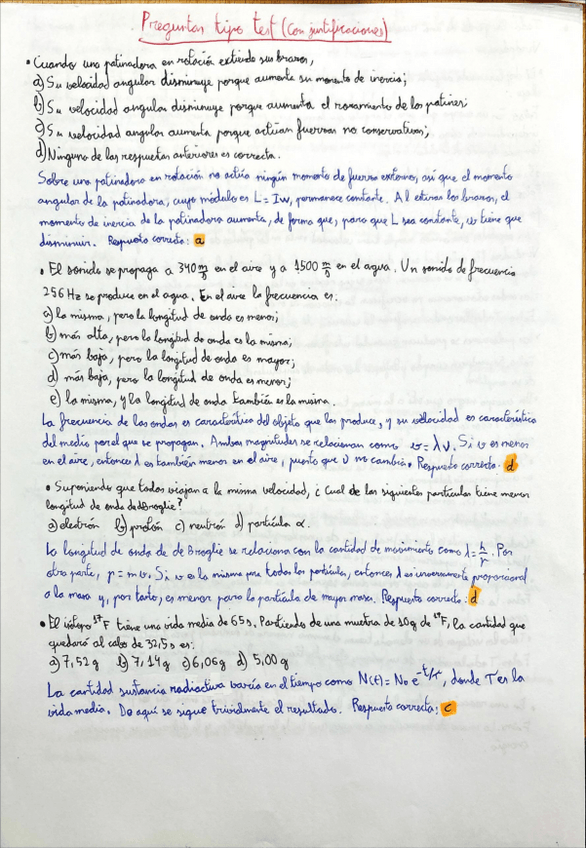 Preguntas tipo test (con justificaciones)
• Cuando una patinadora en rotación extiende sus brazos,
a) Su velocidad angular disminuye porque aumenta su momento de inercia;
b) Su velocidad angular disminuye porque aumenta el rozamiento de los patines;
c) Su velocidad angular aumenta porque actúan fuerzas no conservativas;
d) Ninguna de las respuestas anteriores es correcta.
Sobre una patinadora en rotación no actúa ningún momento de fuerza externo, así que el momento
angular de la patinadora, cuyo módulo es L = Iω, permanece constante. Al estirar los brazos, el
momento de inercia de la patinadora aumenta, de forma que, para que L sea constante, ω tiene que
disminuir. Respuesta correcta: a
• El sonido se propaga a 340 m/s en el aire y a 1500 m/s en el agua. Un sonido de frecuencia
256 Hz se produce en el agua. En el aire la frecuencia es:
a) la misma, pero la longitud de onda es menor;
b) más alta, pero la longitud de onda es la misma;
c) más baja, pero la longitud de onda es mayor;
d) más baja, pero la longitud de onda es menor;
e) la misma, y la longitud de onda también es la misma.
La frecuencia de las ondas es característica del objeto que las produce, y su velocidad es característica
del medio por el que se propagan. Ambas magnitudes se relacionan como v = λν. Si v es menor
en el aire, entonces λ es también menor en el aire, puesto que ν no cambia. Respuesta correcta: d
• Suponiendo que todas viajan a la misma velocidad, ¿Cuál de las siguientes partículas tiene menor
longitud de onda de De Broglie?
a) electrón b) protón c) neutrón d) partícula α.
La longitud de onda de de Broglie se relaciona con la cantidad de movimiento como λ = h/p. Por
otra parte, p = mv. Si v es la misma para todas las partículas, entonces λ es inversamente proporcional
a la masa y, por tanto, es menor para la partícula de mayor masa. Respuesta correcta: d
• El isótopo F tiene una vida media de 65s. Partiendo de una muestra de 10g de F, la cantidad que
quedará al cabo de 32,5s es:
a) 7,52 g b) 7,14 g c) 6,06 g d) 5,00 g
La cantidad sustancia radiactiva varía en el tiempo como N(t) = N₀ e^-t/τ, donde τ es la
vida media. De aquí se sigue trivialmente el resultado. Respuesta correcta: c